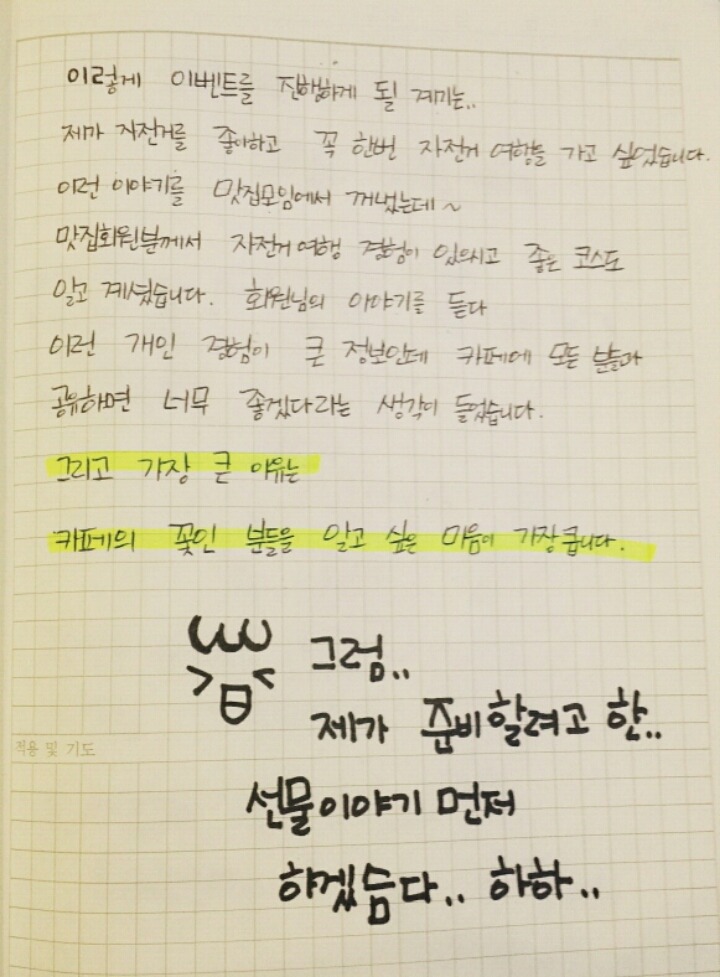 이렇게 이벤트를 진행하게 될 계기는..
제가 자전거를 좋아하고 꼭 한번 자전거 여행을 가고 싶었습니다.
이런 이야기를 맛집모임에서 꺼냈는데~
맛집회원분께서 자전거여행 경험이 있으시고 좋은 코스도
알고 계셨습니다. 회원님의 이야기를 듣다
이런 개인 경험이 큰 정보인데 카페에 모든 분들과
공유하면 너무 좋겠다라는 생각이 들었습니다.
그리고 가장 큰 이유는
카페의 꽃인 분들을 알고 싶은 마음이 가장큽니다.
그럼..
제가 준비할려고 한..
적용 및 기도
선물이야기 먼저
햐겠슴다.. 하하..